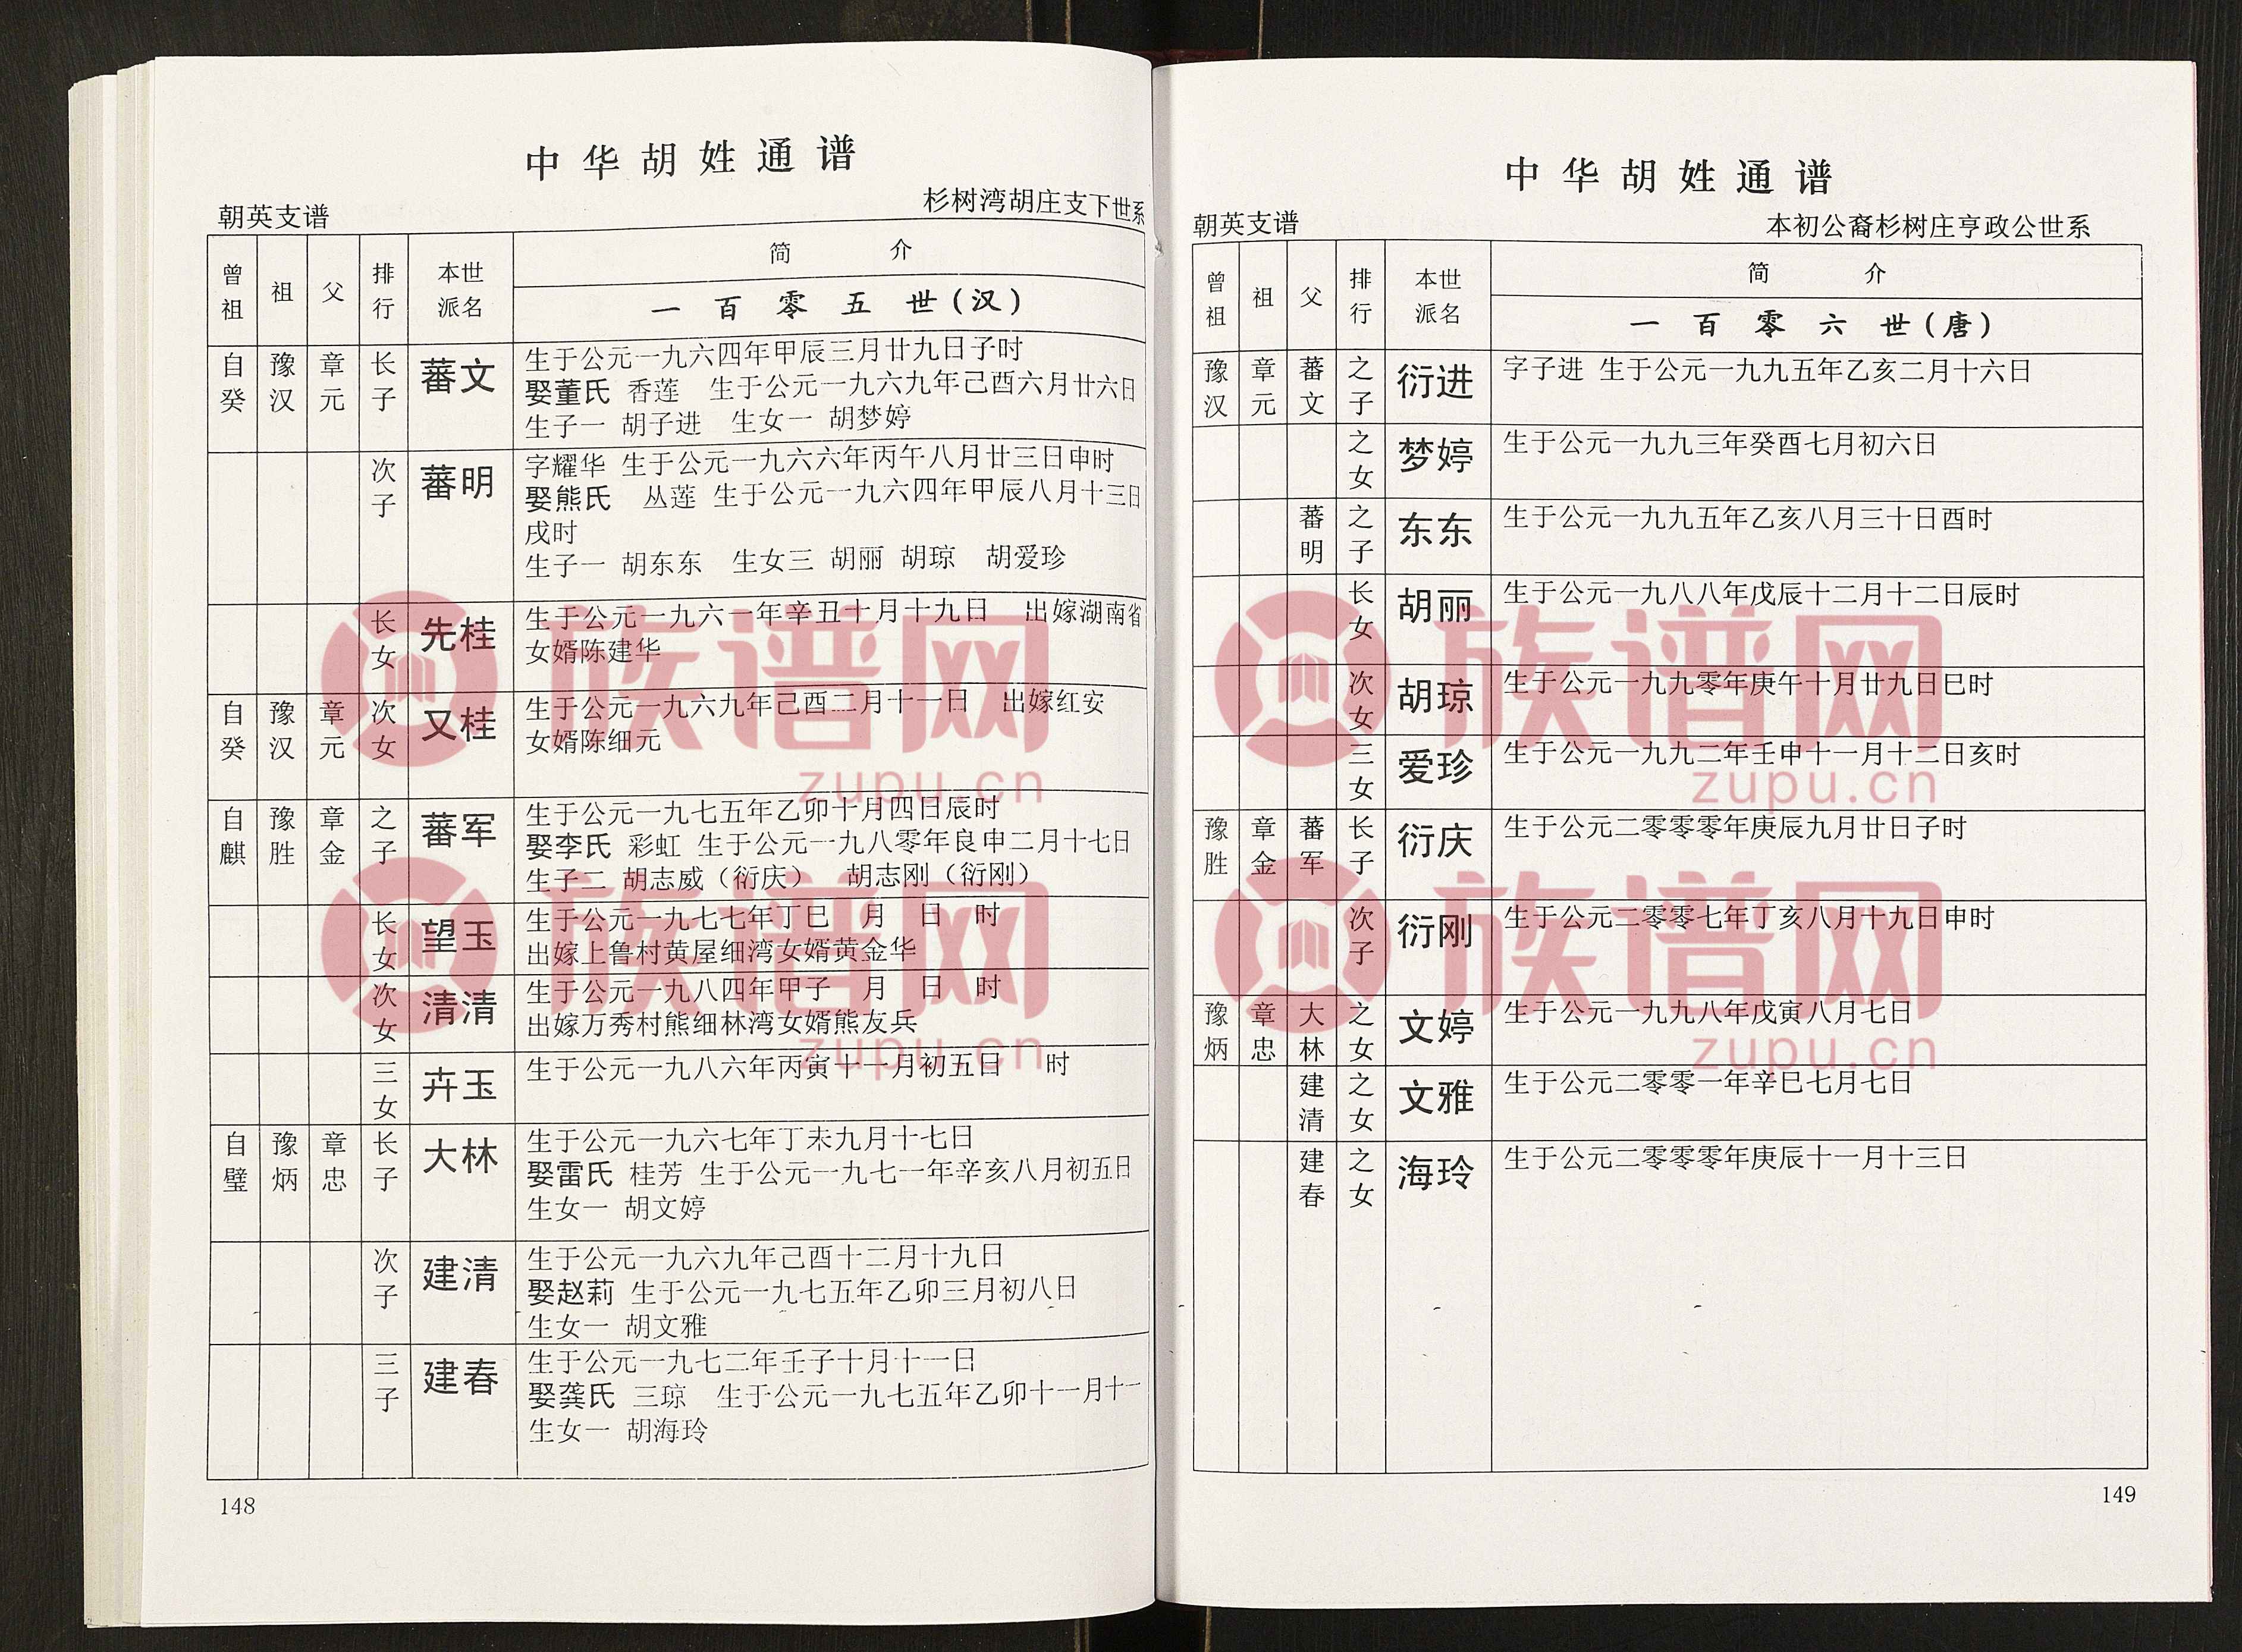 中华胡姓通谱
朝英支谱
杉树湾胡庄支下世系
曾祖 祖 父 排行 本世派名 简介
一百零五世(汉)
自癸 豫汉 章元 长子 蕃文
生于公元一九六四年甲辰三月廿九日子时
娶董氏 香莲 生于公元一九六九年己酉六月廿六日
生子一 胡子进 生女一 胡梦婷
次子 蕃明
字耀华 生于公元一九六六年丙午八月廿三日申时
娶熊氏 丛莲 生于公元一九六四年甲辰八月十三日
戌时
生子一 胡东东 生女三 胡丽 胡琼 胡爱珍
长女 先桂
生于公元一九六一年辛丑十月十九日 出嫁湖南省
女婿陈建华
自癸 豫汉 章元 次女 又桂
生于公元一九六九年己酉二月十一日 出嫁红安
女婿陈细元
自麒 豫胜 章金 之子 蕃军
生于公元一九七五年乙卯十月四日辰时
娶李氏 彩虹 生于公元一九八零年良申二月十七日
生子二 胡志威（衍庆） 胡志刚（衍刚）
长女 望玉
生于公元一九七七年丁巳 月 日 时
出嫁上鲁村黄屋细湾女婿黄金华
次女 清清
生于公元一九八四年甲子 月 日 时
出嫁万秀村熊细林湾女婿熊友兵
三女 卉玉
生于公元一九八六年丙寅十一月初五日 时
自璧 豫炳 章忠 长子 大林
生于公元一九六七年丁未九月十七日
娶雷氏 桂芳 生于公元一九七一年辛亥八月初五日
生女一 胡文婷
次子 建清
生于公元一九六九年己酉十二月十九日
娶赵莉 生于公元一九七五年乙卯三月初八日
生女一 胡文雅
三子 建春
生于公元一九七二年壬子十月十一日
娶龚氏 三琼 生于公元一九七五年乙卯十一月十一
生女一 胡海玲
148
中华胡姓通谱
朝英支谱
本初公裔杉树庄亨政公世系
曾祖 祖 父 排行 本世派名 简介
一百零六世(唐)
豫汉 章元 蕃文 之子 衍进
字子进 生于公元一九九五年乙亥二月十六日
之女 梦婷
生于公元一九九三年癸酉七月初六日
蕃明 之子 东东
生于公元一九九五年乙亥八月三十日酉时
长女 胡丽
生于公元一九八八年戊辰十二月十二日辰时
次女 胡琼
生于公元一九九零年庚午十月廿九日巳时
三女 爱珍
生于公元一九九二年壬申十一月十二日亥时
豫胜 章金 蕃军 长子 衍庆
生于公元二零零零年庚辰九月廿日子时
次子 衍刚
生于公元二零零七年丁亥八月十九日申时
豫炳 章忠 大林 之女 文婷
生于公元一九九八年戊寅八月七日
建清 之女 文雅
生于公元二零零一年辛巳七月七日
建春 之女 海玲
生于公元二零零零年庚辰十一月十三日
149
族谱网
zupu.cn
族谱网
zupu.cn
族谱网
zupu.cn
族谱网
zupu.cn